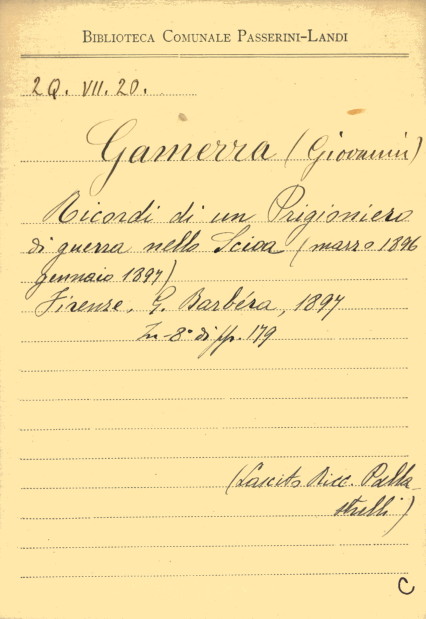 BIBLIOTECA COMUNALE PASSERINI-LANDI
2Q. VII. 20.
Gamerra (Giovanni)
Ricordi di un Prigioniero
di guerra nello Scioa (marzo 1896
gennaio 1897)
Firenze, G. Barbéra, 1897
In-8° di pp. 179
(Lascito Ricc. Palla-
strelli)
C